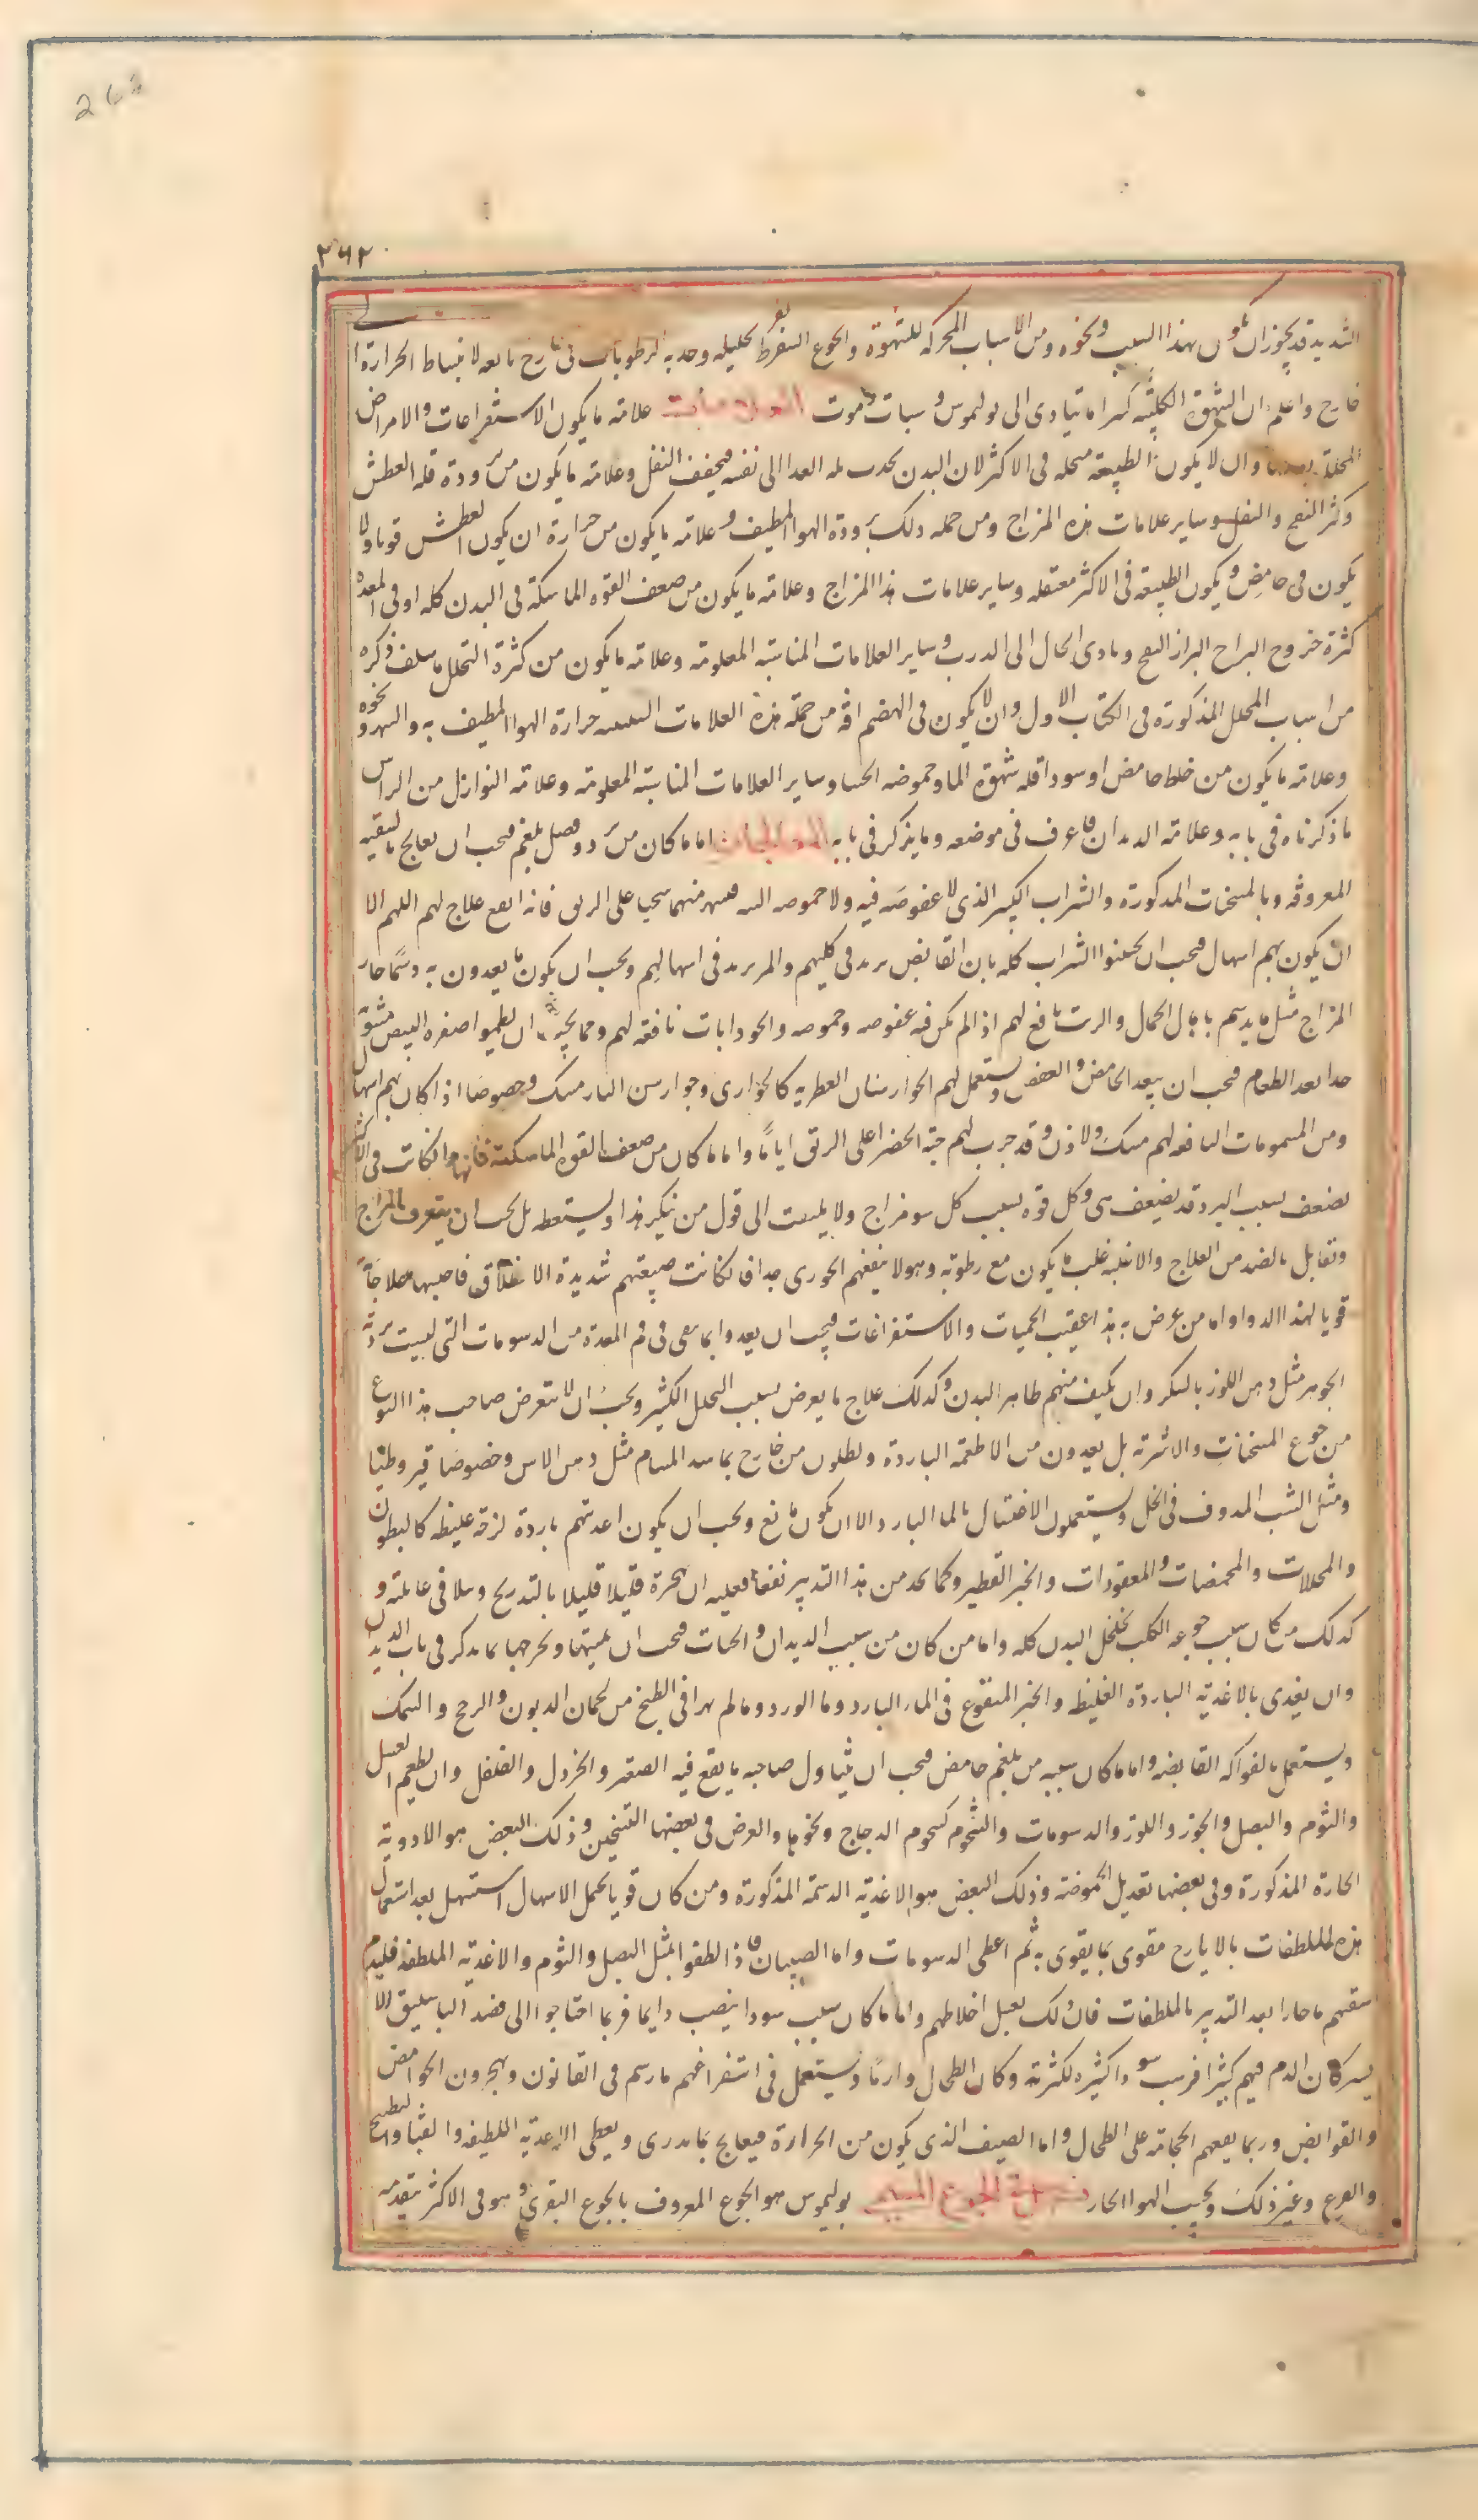 262
٢٦٢
الشديد قد يجوز ان يكون بهذا السبب ونحوه ومن الاسباب المحركة للشهوة والجوع المفرط تحليله وجذبه الرطوبات خارج تابعه لانبساط الحرارة
خارج واعلم ان الشهوة الكلبية كثيرا ما تتادى الى بوليموس وسبات وموت العلامات علامة ما يكون الاستفراغات والامراض
المحللة وان لا يكون الطبيعة منحله فى الاكثر لان البدن يجذب الغدا الى نفسه فيجفف الثفل وعلامة ما يكون من برودة قلة العطش
وكثرة النفخ والثفل وساير علامات هذه المزاج ومن جمله ذلك برودة الهوا المطيف وعلامة ما يكون من حرارة ان يكون العطش قويا ولا
يكون فى حامض ويكون الطبيعة فى الاكثر معتقله وساير علامات هذا المزاج وعلامة ما يكون من ضعف القوه الماسكة فى البدن كله او فى المعدة
كثرة خروج البراز الفج وتادى الحال الى الذرب وساير العلامات المناسبة المعلومة وعلامة ما يكون من كثرة التحلل ما سلف ذكره
من اسباب التحلل المذكورة فى الكتاب الاول وان لا يكون فى الهضم افة من جملة هذه العلامات حرارة الهوا المطيف به والسهر ونحوه
وعلامة ما يكون من خلط حامض او سودا قلة شهوة الما وحموضه الجشا وساير العلامات المناسبة المعلومة وعلامة النوازل من الراس
ما ذكرناه فى بابه وعلامة الديدان ما عرف فى موضعه وما يذكر فى بابه المعالجات اما ما كان من برد وفضل بلغم فيجب ان يعالج بالتنقيه
المعروفه وبالمسخنات المذكورة والشراب الكثير الذى لا عفوصة فيه ولا حموضه منهما سخيا على الريق فانه انفع علاج لهم اللهم الا
ان يكون بهم اسهال فيجب ان يجتنبوا الشراب كله فان القابض يزيد فى كلبهم والمر يزيد فى اسهالهم ويجب ان يكون ما يغذون به دسما حار
المزاج مثل ما يدسم بالجمال والزيت نافع لهم اذا لم يكن فيه عفوصه وحموضه والجوذابات نافعة لهم ومما ان يطعموا صفره البيض مشوية
جدا بعد الطعام فيجب ان يبعد الحامض والعفص ويستعمل لهم الجوارشنات العطريه كالجوزى وجوارشن النارمشك وخصوصا اذا كان بهم اسهال
ومن المشمومات النافعه لهم مسك ولاذن وقد جرب لهم حبة الخضرا على الريق اياما واما ما كان من ضعف القوة الماسكة فانها وان كانت فى الاكثر
تضعف بسبب البرد قد يضعف هى وكل قوه بسبب كل سو مزاج ولا يلتفت الى قول من ينكر هذا ويستعظمه بل يجب ان يتعرف المزاج
ويقابل بالضد من العلاج والاغلب ما يكون مع رطوبة وهولا ينفعهم الجوزى جدا فان كانت طبيعتهم شديدة الانطلاق فاحبسها علاجا
قويا لهذا الدوا واما من عرض به هذا عقيب الحميات والاستفراغات فيجب ان يغدوا بما يبقى فى فم المعدة من الدسومات التى ليست بردية
الجوهر مثل دهن اللوز بالسكر وان يكيف منهم ظاهر البدن وكذلك علاج ما يعرض بسبب التحلل الكثير ويجب ان لا يتعرض صاحب هذا النوع
من جوع المسخنات والاشربة بل يغذون من الاطعمة الباردة ويطلون من خارج بما يسد المسام مثل دهن الاس وخصوصا قيروطيا
ومثل الشب المدوف فى الخل ويستعملون الاغتسال بالما البارد الا ان يكون مانع ويجب ان يكون اغذيتهم باردة لزجة غليظه كالبطون
والمخللات والمحمضات والمعقودات والخبز الفطير وكما يجد من هذا التدبير نفعا فعليه ان يهجره قليلا قليلا بالتدريج وتلافى غائلته و
كذلك من كان سبب جوعه الكلب تخلخل البدن كله واما من كان من سبب الديدان والحيات فيجب ان يميتها ويخرجها بما يذكر فى باب الديدان
وان يغذى بالاغذية الباردة الغليظه والخبز المنقوع فى الماء البارد وما الورد وما لم يهرا فى الطبخ من لحمان والسمك
ويستعمل بالفواكه القابضه واما ما كان سببه من بلغم حامض فيجب ان يتناول صاحبه ما يقع فيه الصعتر والخردل والفلفل وان يطعم العسل
والثوم والبصل والجوز واللوز والدسومات والشحوم كشحوم الدجاج ونحوها والغرض فى بعضها التسخين وذلك البعض هو الادوية
الحارة المذكورة وفى بعضها تعديل الحموضة وذلك البعض هو الاغذية الدسمة المذكورة ومن كان قويا يحمل الاسهال استسهل بعد استعمال
هذه الملطفات بالايارج مقوى بما يقوى به ثم اعطى الدسومات واما الصبيان فاذا لطفوا بمثل البصل والثوم والاغذية الملطفه فليدم
سقيهم ما حارا بعد التدبير بالملطفات فان ذلك يغسل اخلاطهم واما ما كان بسبب سودا ينصب دايما فربما احتاجوا الى فصد الباسليق ان
كان الدم فيهم كثيرا فرسب سودا كثيره لكثرته وكان الطحال وارما ويستعمل فى استفراغهم ما رسم فى القانون ويهجرون الحوامض
والقوابض وربما ينفعهم الحجامة على الطحال واما الصيف الذى يكون من الحرارة فيعالج بما تدرى ويعطى الاغذية اللطيفه والقثا والبطيخ
والقرع وغير ذلك ويجنب الهوا الحار الجوع المسمى بوليموس هو الجوع المعروف بالجوع البقرى وهو فى الاكثر يتقدمه